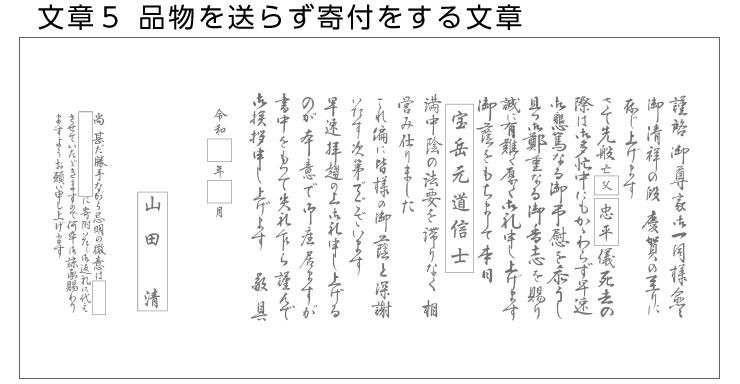 文章５ 品物を送らず寄付をする文章
謹啓 御尊家御一同様愈々
御清祥の段 慶賀の至りに
存じ上げます
さて先般 亡 父 忠平 儀 死去の
際は御多忙中にもかゝわらず早速
御懇篤なる御弔慰を忝うし
且つ御鄭重なる御書志を賜り
誠に有難く厚く御礼申し上げます
御蔭をもちまして本日
宝岳元道信士
満中陰の法要を滞りなく相
営み仕りました
これ偏に皆様の御蔭と深謝
いたす次第でございます
早速拝趨の上御礼申し上げる
のが本意で御座居ますが
書中をもって失礼乍ら謹んで
御挨拶申し上げます 敬具
令和 年 月
山田 清
尚 甚だ勝手ながら忌明の微意は
に寄附いたし御返礼に代え
させていただきますので何卒御諒承賜わり
ますようお願い申し上げます